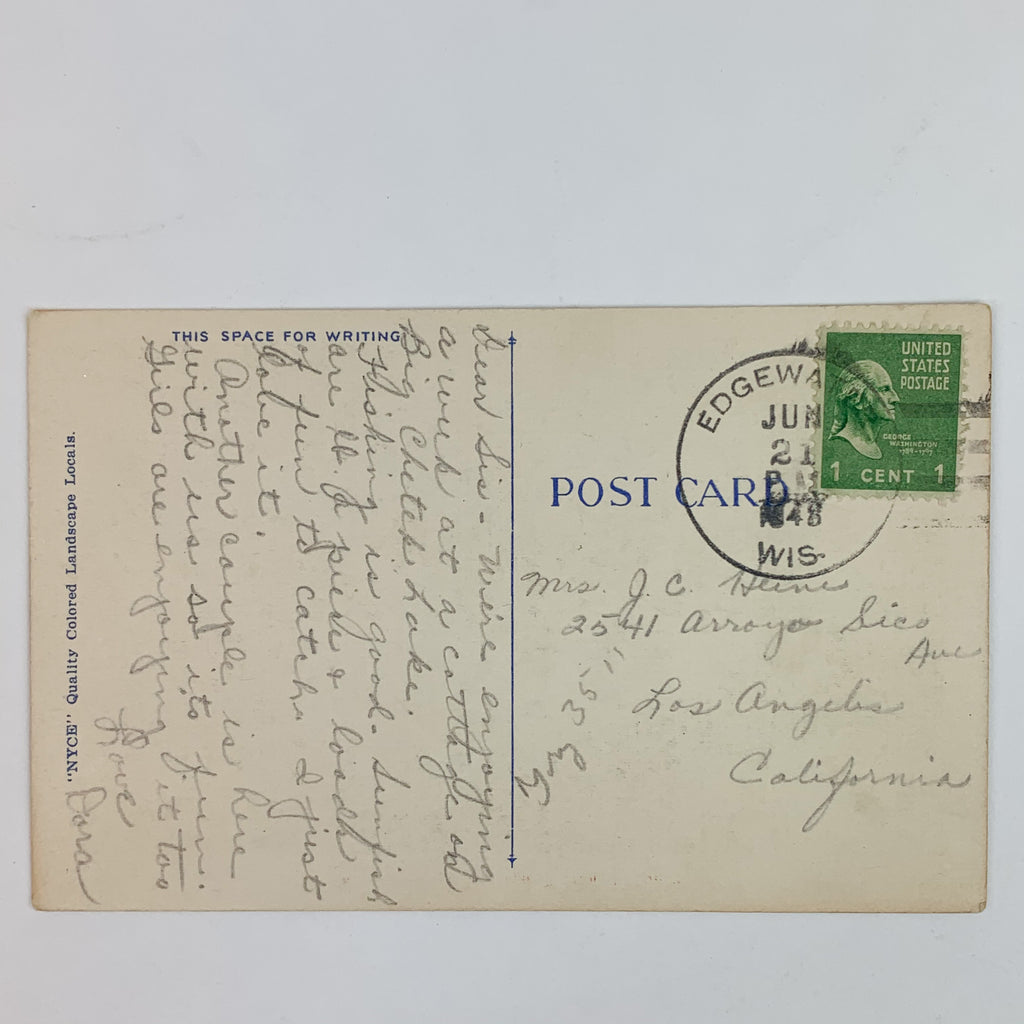 THIS SPACE FOR WRITING
Dear Sis - We're enjoying
a week at a cottage on
Big Chetek Lake.
Fishing is good. Sunfish
are ½ lb. & loads
of fun to catch. I just
love it.
Another couple is here
with us so it's fun.
Girls are enjoying it too
Love
Dora
"NYCE" Quality Colored Landscape Locals.
POST CARD
EDGEWA
JUN
21
PM
1948
WIS.
UNITED
STATES
POSTAGE
GEORGE
WASHINGTON
1789-1797
1 CENT 1
Mrs. J. C. Heine
2541 Arroyo Sico
Ave
Los Angeles
California